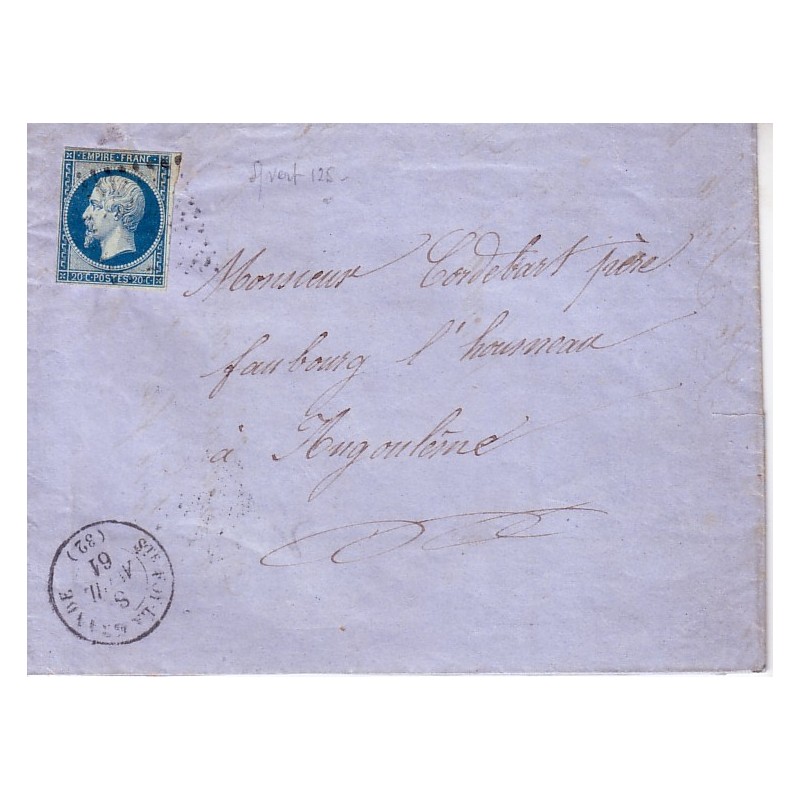 EMPIRE · FRANC ·
20 C · POSTES · 20 C ·
125
Monsieur Cordebart père
faubourg l'houmeau
à Angoulême
STE FOY LA GRANDE
8
AVRIL
61
(32)